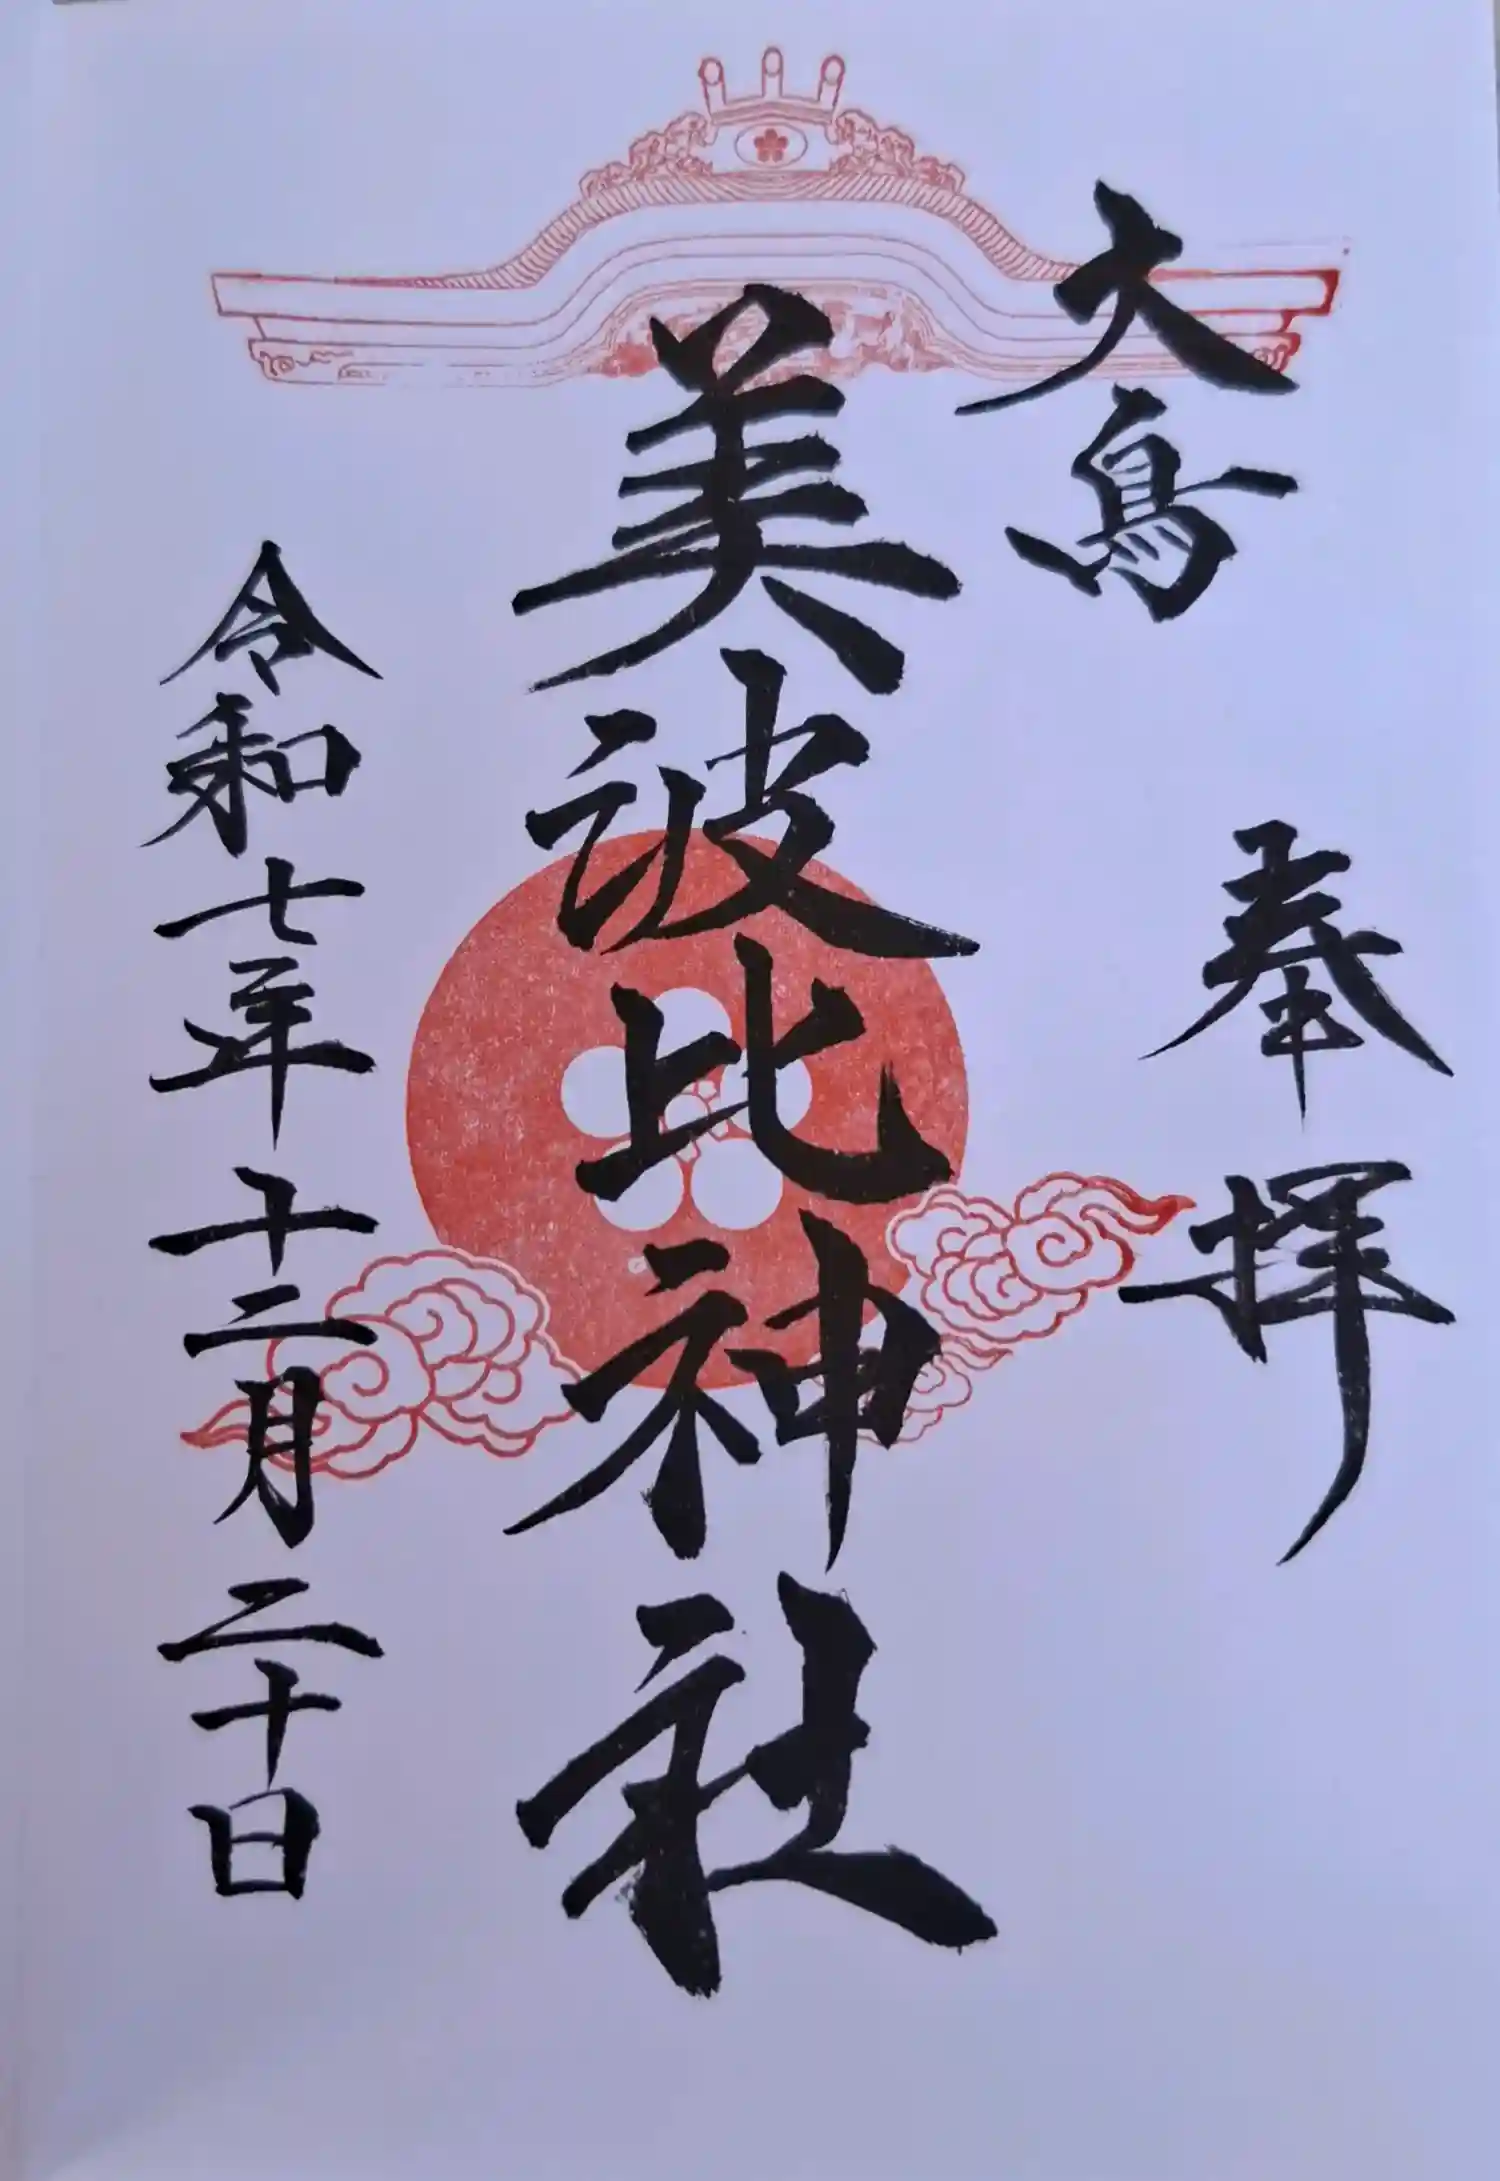 大鳥
奉拝
美波比神社
令和七年十二月二十日